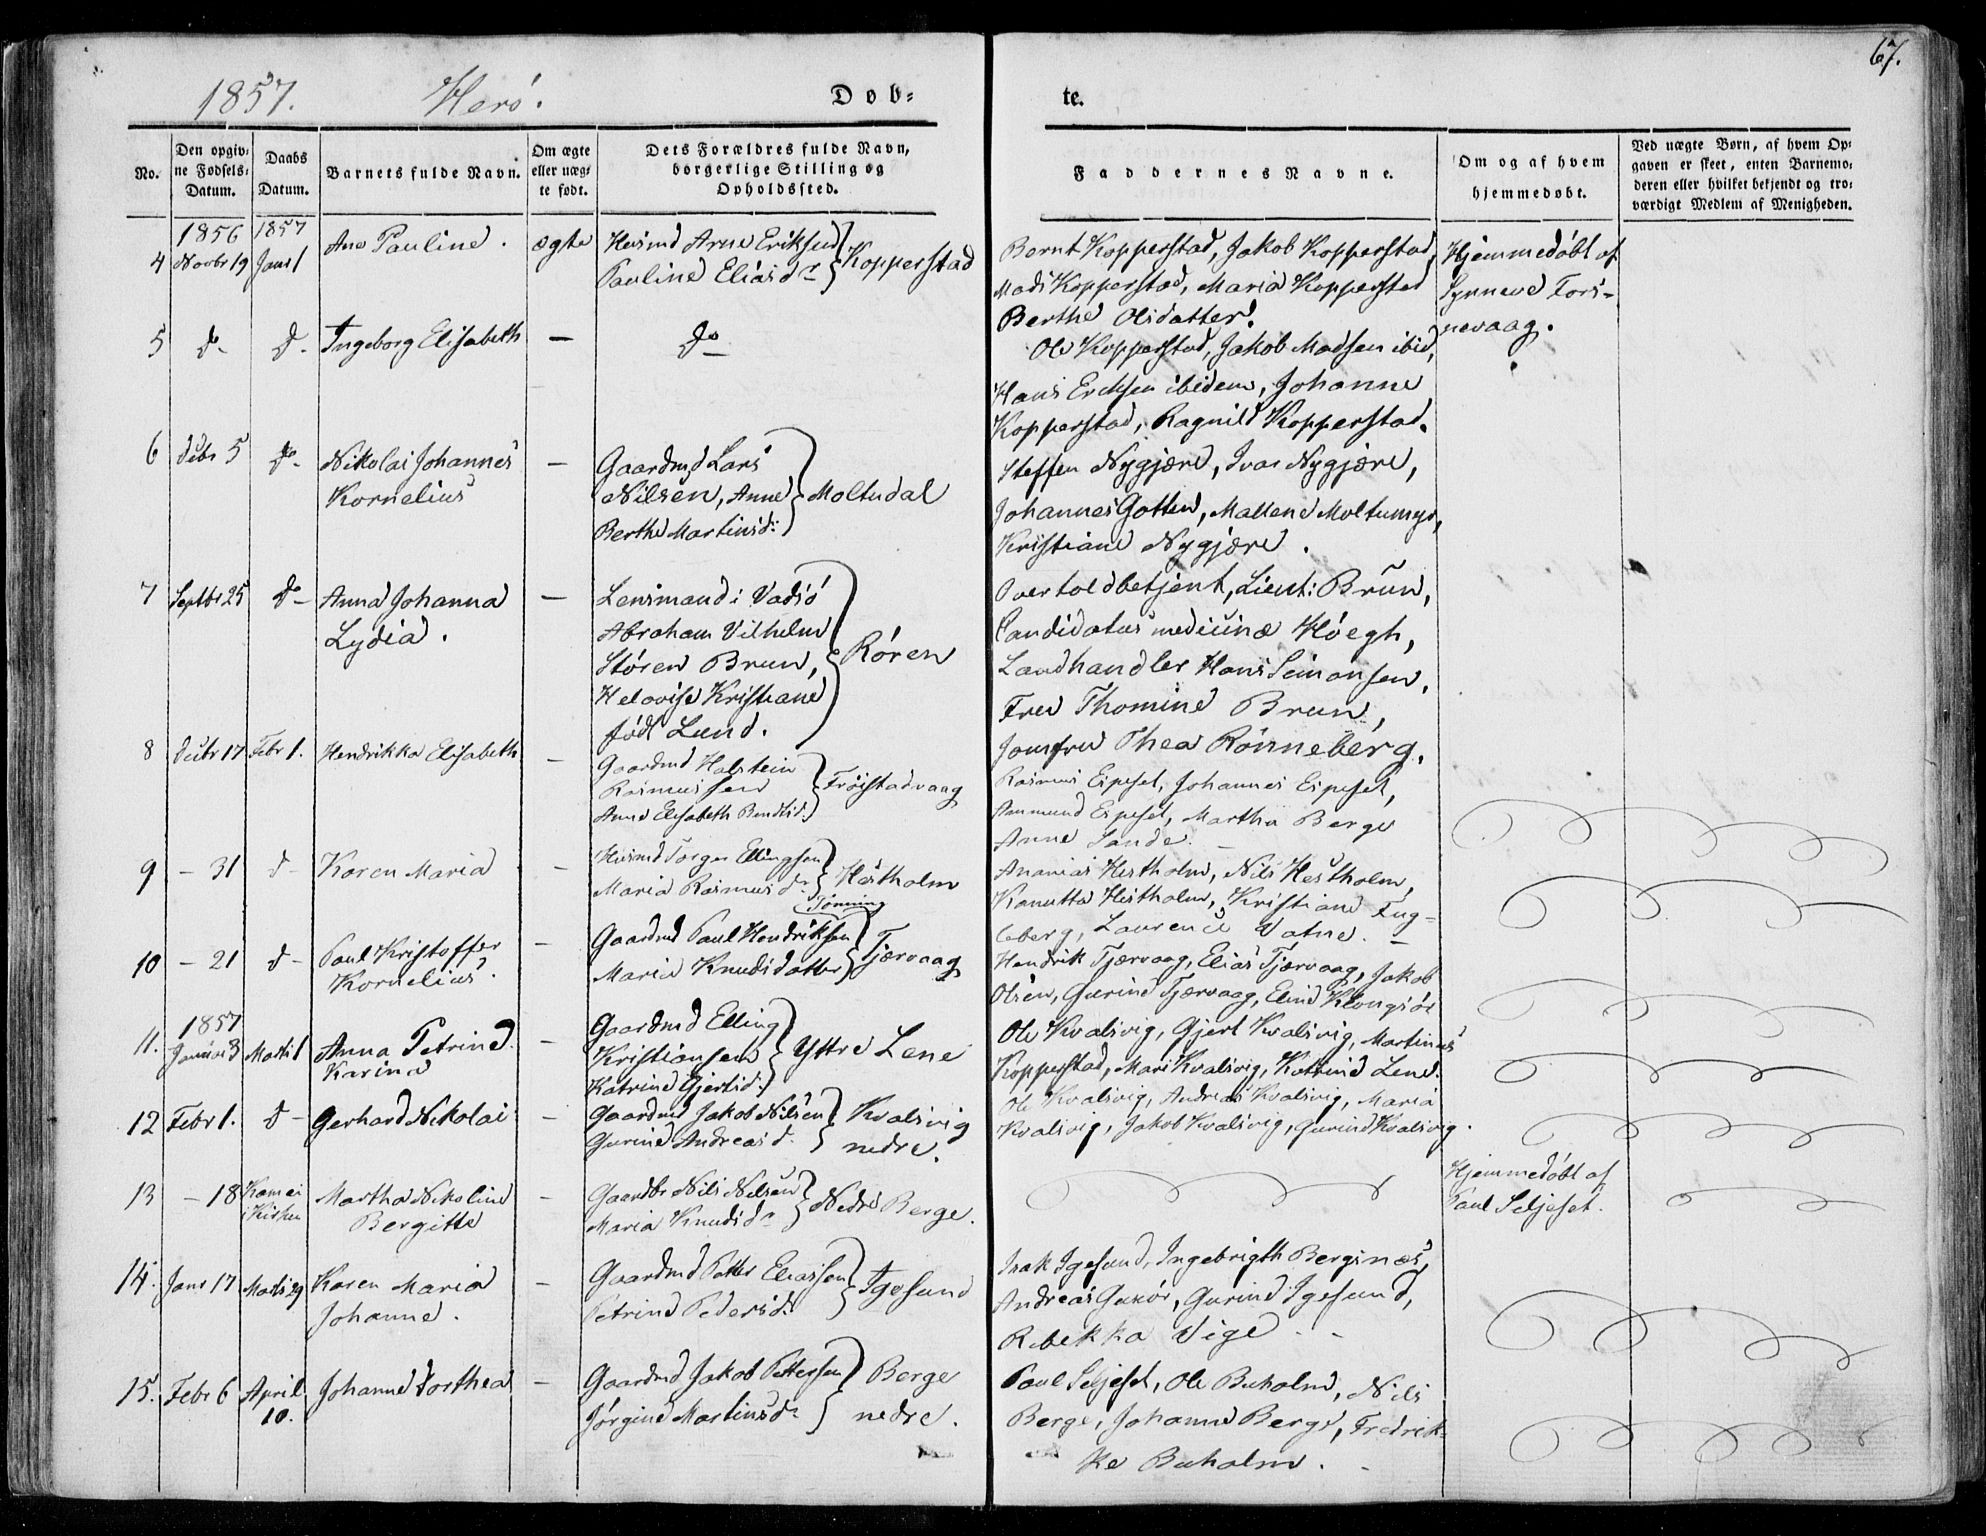 67.
1857. Herö. Døb-
te.
No.
Den opgiv-
ne Fødsels-
Datum.
Daabs
Datum.
Barnets fulde Navn.
Om ægte
eller uæg-
te født.
Dets Forældres fulde Navn,
borgerlige Stilling og
Opholdssted.
Faddernes Navne.
Om og af hvem
hjemmedøbt.
Ved uægte Børn, af hvem Op-
gaven er skeet, enten Barnemo-
deren eller hvilket bekjendt og tro-
værdigt Medlem af Menigheden.
1856 1857
4 Novbr 19 Janr 1 Ane Pauline. ægte Huusmd Arne Eriksen
Pauline Eliasdr } Kopperstad
Bernt Kopperstad, Jakob Kopperstad,
Mads Kopperstad, Maria Kopperstad
Berthe Olsdatter.
Hjemmedøbt af
Synneve Tors-
nevaag.
5 do do Ingeborg Elisabeth — do
Ole Kopperstad, Jakob Madsen ibid,
Hans Ericksen ibidem, Johanne
Kopperstad, Ragnild Kopperstad.
6 Decbr 5 do Nikolai Johannes
Kornelius — Gaardmd Lars
Nilsen, Anne
Berthe Martinsd: } Moltudal
Steffen Nygjære, Ivar Nygjære,
Johannes Gotten, Mallene Moltumyr,
Kristiane Nygjære.
7 Septbr 25 do Anna Johanna
Lydia. — Lensmand i Vadsö
Abraham Vilhelm
Stören Brun,
Helovise Kristiane
født Lund. } Røren
Overtoldbetjent, Lieut: Brun,
Candidatus medicinæ Höegh,
Landhandler Hans Simonsen,
Frue Thomine Brun,
Jomfru Thea Rönneberg.
8 Decbr 17 Febr 1. Hendrikka Elisabeth — Gaardmd Halstein
Rasmussen
Anne Elisabeth Bendtsd. } Fröistadvaag
Rasmus Espeset, Johannes Espeset,
Amund Espeset, Martha Berge
Anne Sande. —
9 — 31 do Karen Maria — Huusmd Torger Ellingsen
Maria Rasmusdr } Hestholm
Ananias Hestholm, Nils Hestholm,
Kanutta Hestholm, Kristiane Fug-
leberg, Laurence Vatne. —
Tönning
10 — 21 do Paul Kristoffer
Kornelius. — Gaardmd Paul Hendriksen
Maria Knudsdatter } Tjærvaag
Hendrik Tjærvaag, Elias Tjærvaag, Jakob
Olsen, Gurine Tjærvaag, Eline Klungsör
1857
11. Januar 3 Marts 1 Anna Petrine
Karina — Gaardmd Elling
Kristiansen
Katrine Gjertsd. } Yttre Lene
Ole Kvalsvig, Gjert Kvalsvig, Martinus
Kopperstad, Mari Kvalsvig, Katrine Lene.
12 Febr 1. do Gerhard Nikolai — Gaardmd Jakob Nilsen
Gurine Andreasd. } Kvalsvig
nedre.
Ole Kvalsvig, Andreas Kvalsvig, Maria
Kvalsvig, Jakob Kvalsvig, Gurine Kvalsvig.
13 — 18 Kom ei
i Kirken Martha Nikoline
Bergitte — Gaardbr Nils Nilsen
Maria Knudsdr } Nedre Berge.
Hjemmedøbt af
Paul Seljeset.
14. Janr 17 Marts 29 Karen Maria
Johanne. — Gaardmd Petter Eliassen
Petrine Pedersd. } Igesund
Isak Igesund, Ingebrigth Bergsnæs,
Andreas Gursör, Gurine Igesund,
Rebekka Vige.
15. Febr 6 April
10. Johanne Dorthea — Gaardmd Jakob Pettersen
Jörgine Martinsdr } Berge
nedre.
Paul Seljeset, Ole Buholm, Nils
Berge, Johanne Berge, Fredrik-
ke Buholm.